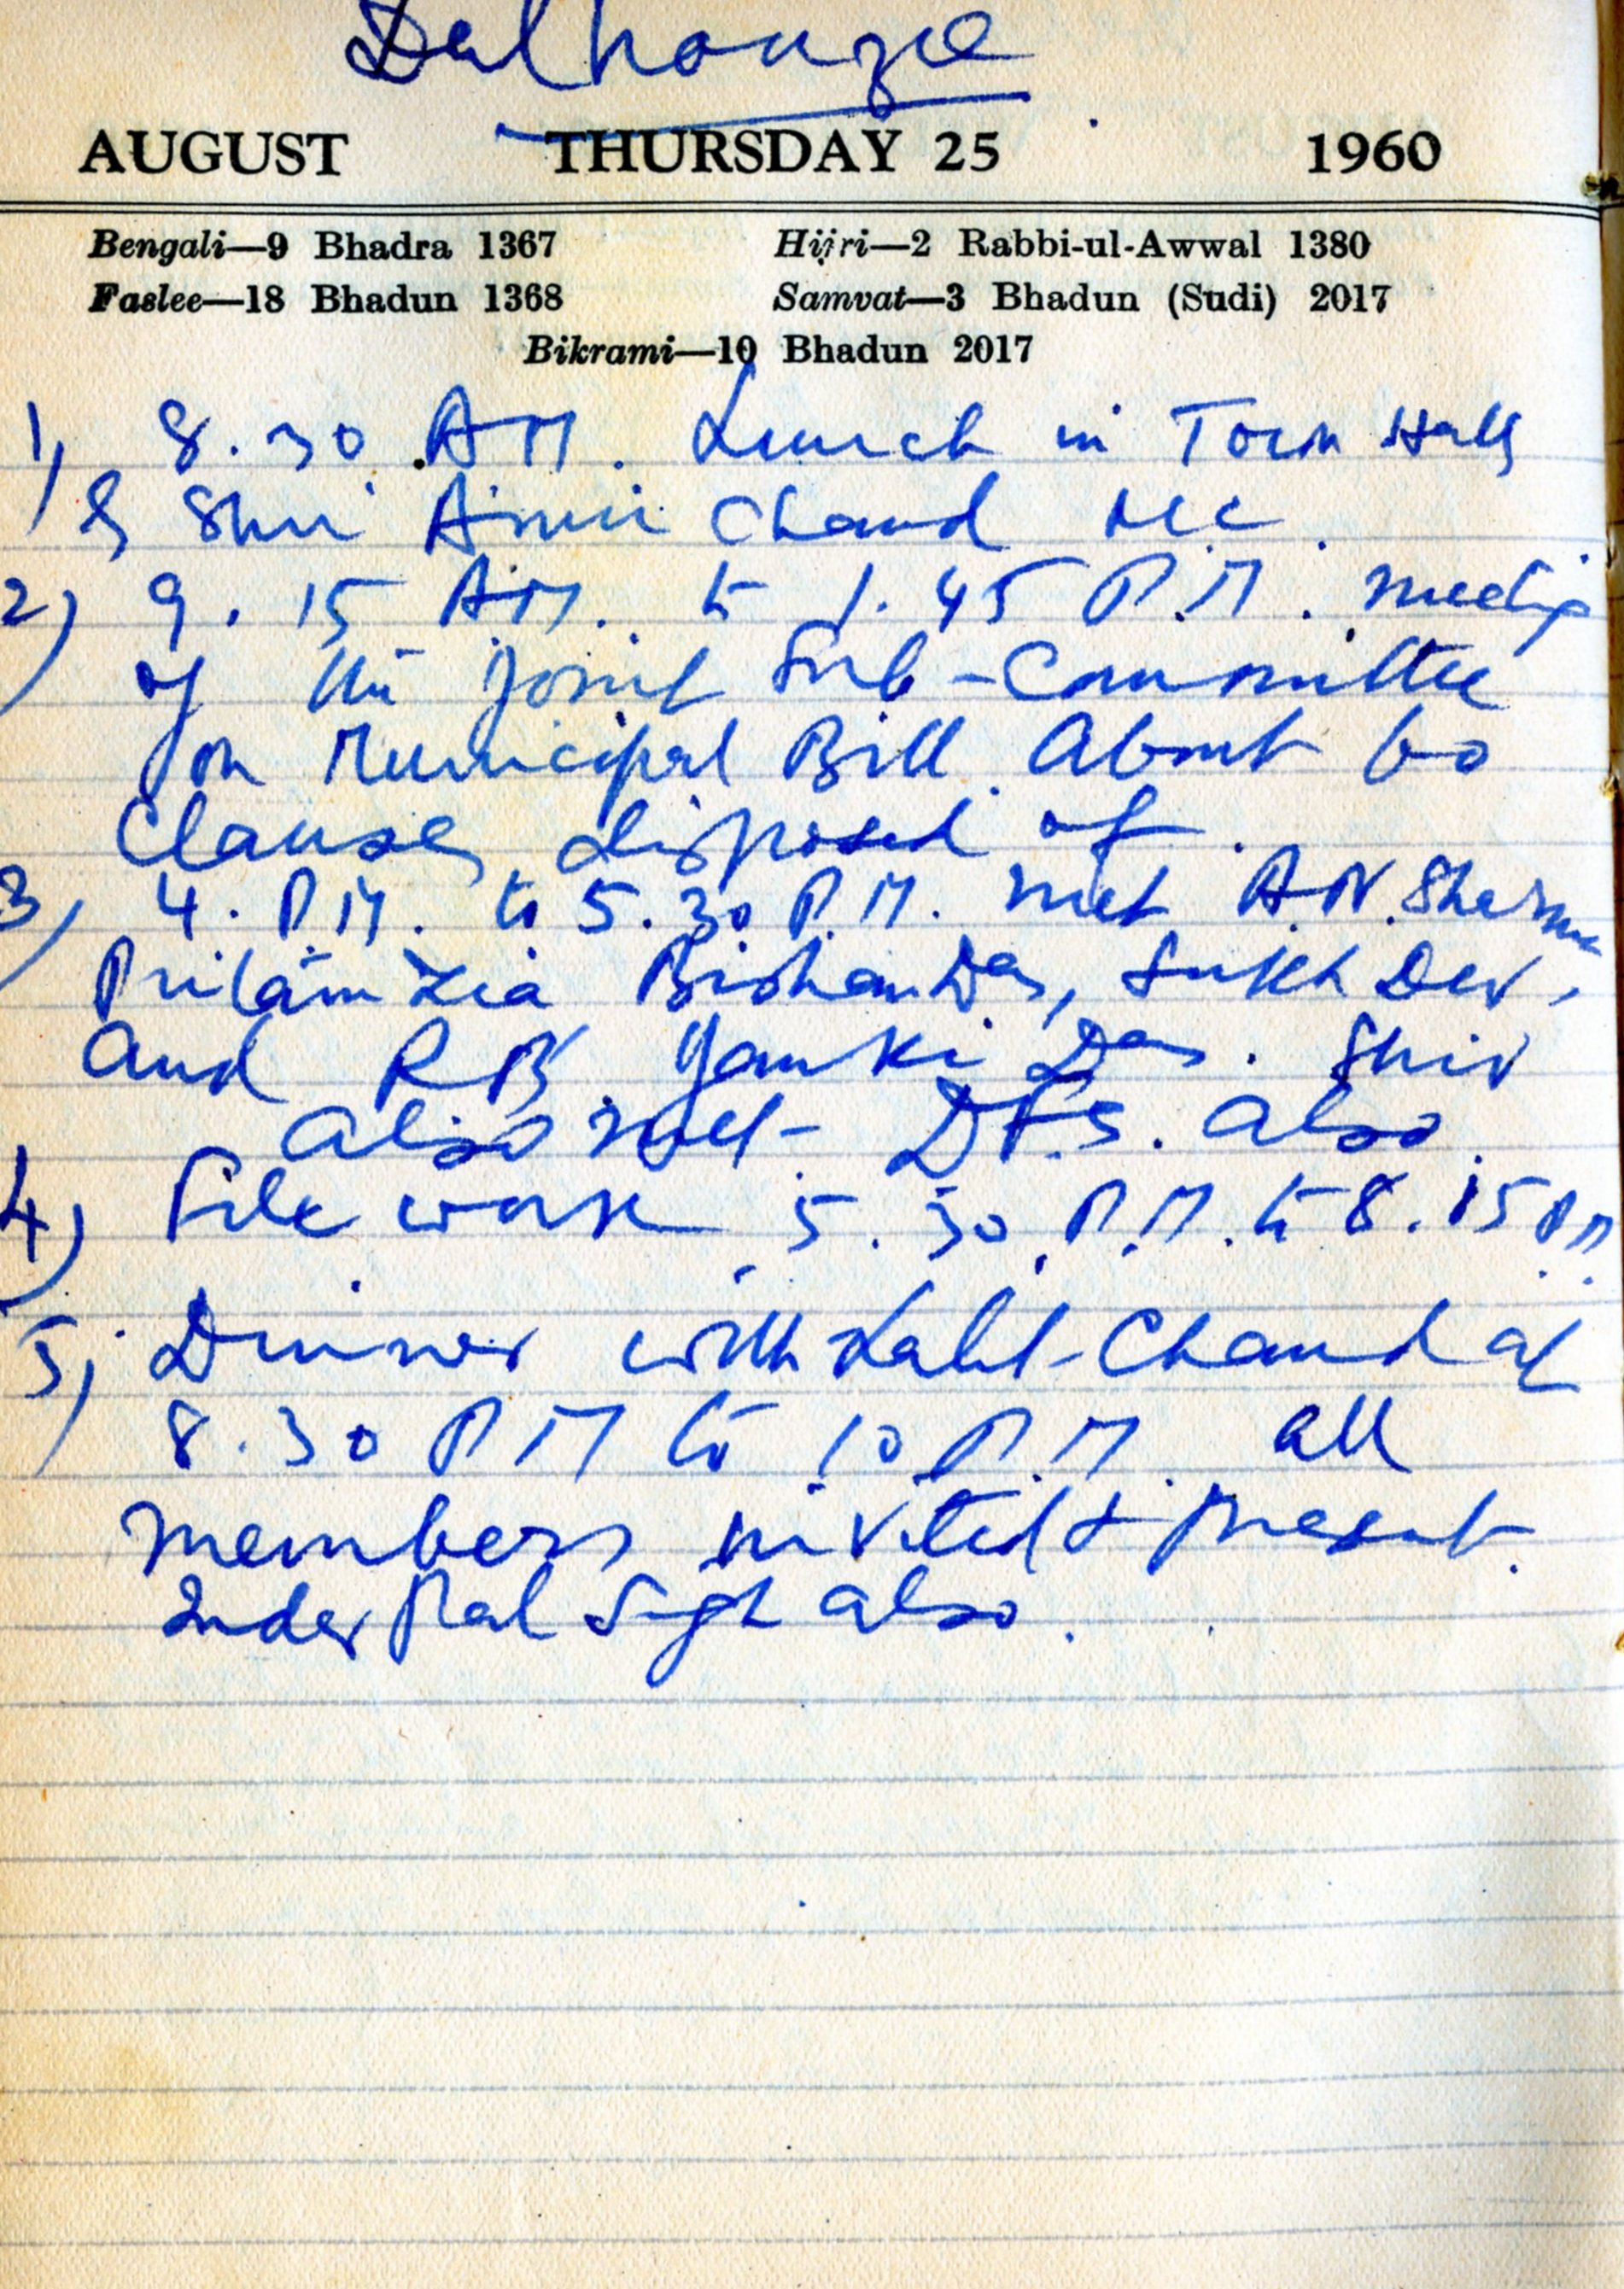 Dalhouzie
AUGUST THURSDAY 25 1960
Bengali—9 Bhadra 1367 Hijri—2 Rabbi-ul-Awwal 1380
Faslee—18 Bhadun 1368 Samvat—3 Bhadun (Sudi) 2017
Bikrami—10 Bhadun 2017
1) 8.30 AM. Lunch in Town Hall
Shri Amir Chand
2) 9.15 AM. to 1.45 P.M. meeting
of the Joint Sub-Committee
on Municipal Bill. About 60
Clauses disposed of.
3) 4. P.M. to 5.30 P.M. met A.N. Sharma
Pritam Bishan Das, Sukh Dev,
and R B Janki Das. Shiv
also met. also.
4) File work 5.30 P.M. to 8.15 PM.
5) Dinner with Labh Chand at
8.30 PM to 10 P.M. all
members invited & present.
Inder Pal Singh also.